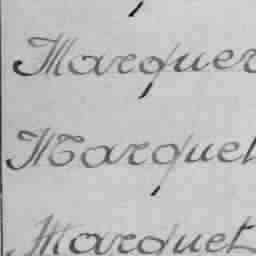 Marquer
Marquet
Marquet